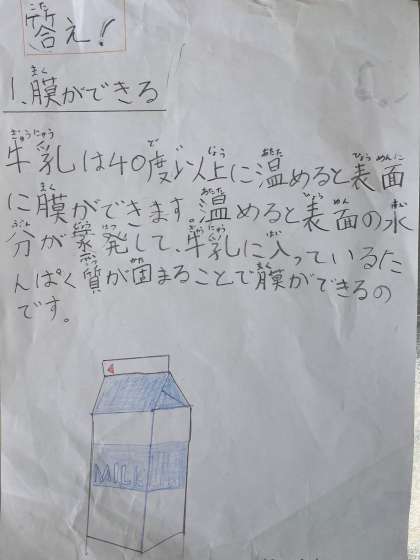 答え!
1.膜ができる
牛乳は40度以上に温めると表面
に膜ができます。温めると表面の水
分が蒸発して、牛乳に入っているた
んぱく質が固まることで膜ができるの
です。
MILK